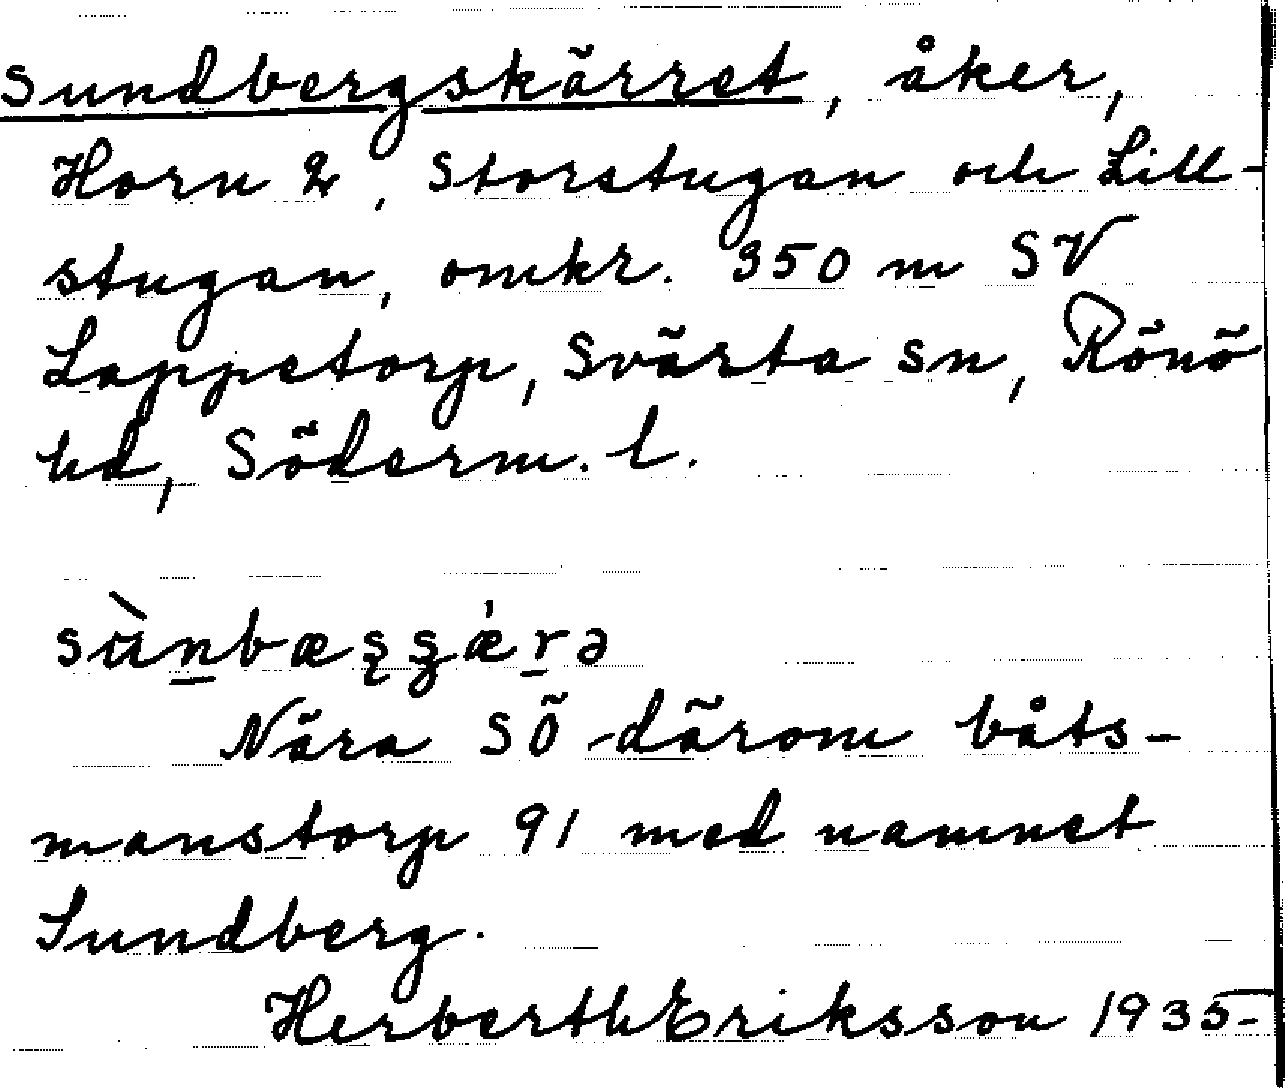 Sundbergskärret, åker,
Horn 2, Storstugan och Lill-
stugan, omkr. 350 m SV
Lappetorp, Svärta sn, Rönö
hd, Söderm. l.
Nära SÖ därom båts-
manstorp 91 med namnet
Sundberg.
Herberth Eriksson 1935